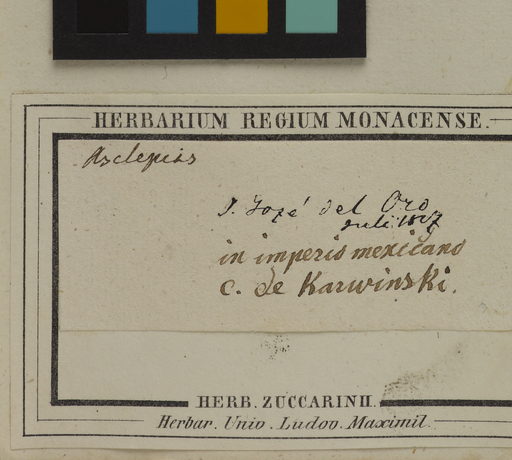 HERBARIUM REGIUM MONACENSE.
Asclepias
S. José del Oro
Juli 1827
in imperio mexicano
C. de Karwinski.
HERB. ZUCCARINII.
Herbar. Univ. Ludov. Maximil.